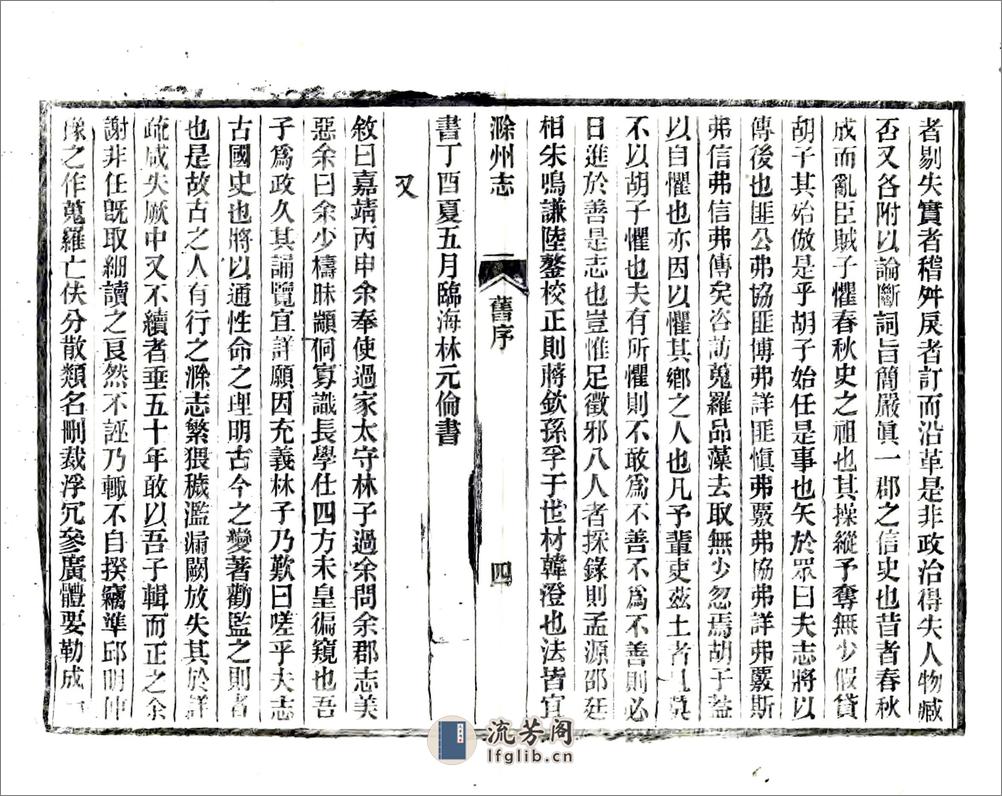 者剔失實者稽舛戾者訂而沿革是非政治得失人物臧
否又各附以論斷詞旨簡嚴眞一郡之信史也昔者春秋
成而亂臣賊子懼春秋史之祖也其操縱予奪無少假貸
胡子其殆倣是乎胡子始任是事也矢於眾曰夫志將以
傳後也匪公弗協匪博弗詳匪愼弗覈弗協弗詳弗覈斯
弗信弗信弗傳矣咨訪蒐羅品藻去取無少忽焉胡子蓋
以自懼也亦因以懼其鄉之人也凡予輩吏茲土者
不以胡子懼也夫有所懼則不敢爲不善不爲不善則必
日進於善是志也豈惟足徵邪八人者採錄則孟源邵廷
相朱鳴謙陸鏊校正則蔣欽孫孚于世材韓澄也法皆宜
滁州志
舊序
四
書丁酉夏五月臨海林元倫書
又
敘曰嘉靖丙申余奉使過家太守林子過余問余郡志美
惡余曰余少檮昧顓侗寡識長學仕四方未皇徧窺也吾
子爲政久其誦覽宜詳願因充義林子乃歎曰嗟乎夫志
古國史也將以通性命之理明古今之變著勸監之則者
也是故古之人有行之滁志繁猥穢濫漏闕放失其於詳
疏咸失厥中又不續者垂五十年敢以吾子輯而正之余
謝非任旣取細讀之良然不誣乃輒不自揆竊準邱明仲
豫之作蒐羅亡佚分散類名刪裁浮冗參廣體要勒成一
流芳阁
lfglib.cn